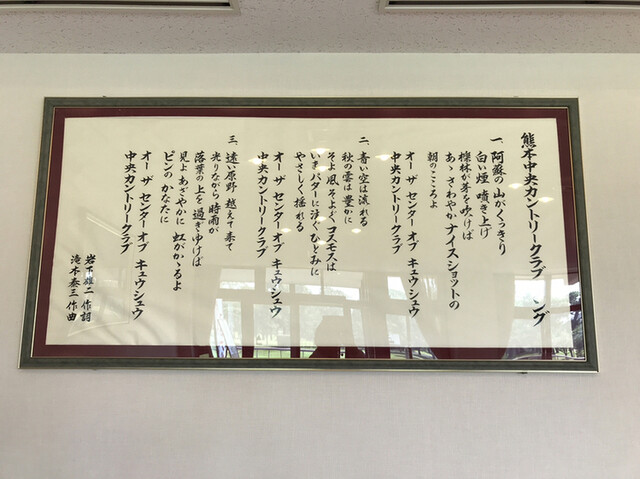 熊本中央カントリークラブ ング
一、阿蘇の 山がくっきり
白い煙 噴き上げ
樑林が 芽を吹けば
あゝさわやか ナイスショットの
朝のこころよ
オー ザ センター オブ キュウシュウ
中央カントリークラブ
二、青い空は 流れる
秋の雲は 豊かに
そよ風 そよぐ コスモスは
いまパターに 注ぐひとみに
やさしく 揺れる
オー ザ センター オブ キュウシュウ
中央カントリークラブ
三、遠い原野 越えて来て
光りながら 時雨が
落葉の上を 過ぎゆけば
見よ あざやかに 虹がかゝるよ
ピンの かなたに
オー ザ センター オブ キュウシュウ
中央カントリークラブ
岩下雄二 作詞
滝本泰三 作曲